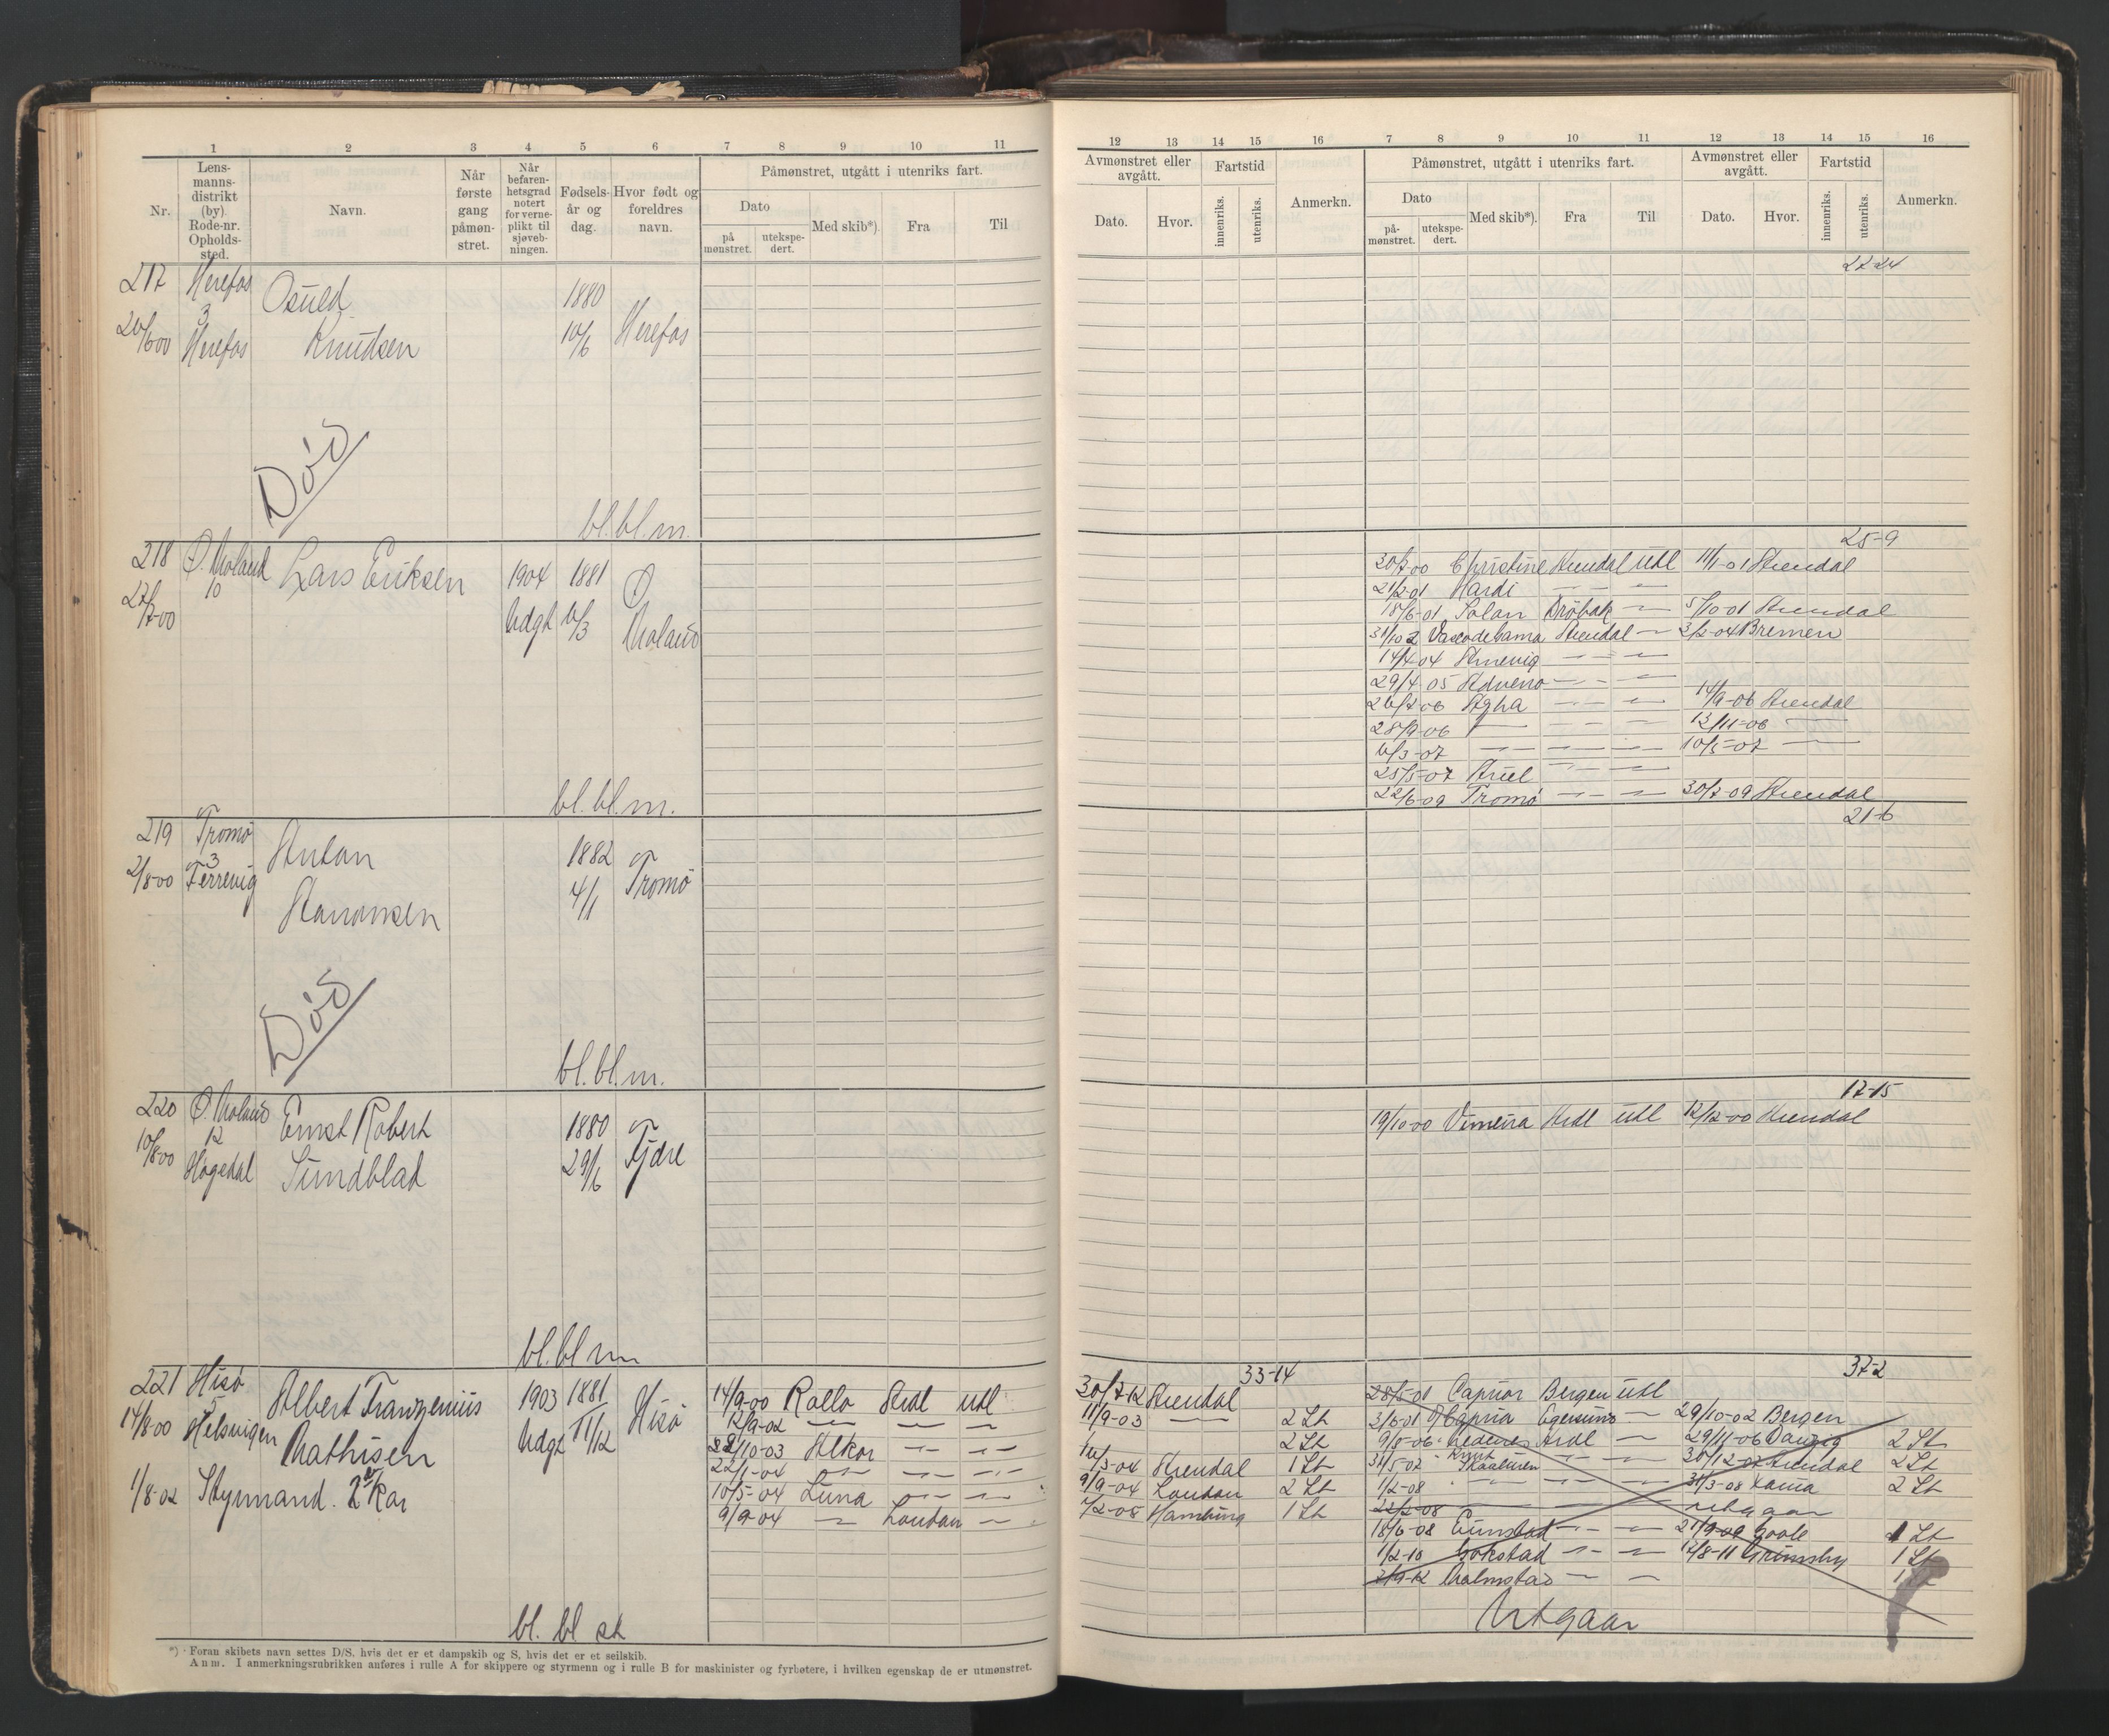 1 2 3 4 5 6 7 8 9 10 11
Nr.
Lens-
manns-
distrikt
(by)
Rode-nr.
Opholds-
sted.
Navn.
Når
første
gang
påmøn-
stret.
Når
befaren-
hetsgrad
notert
for verne-
plikt til
sjøveb-
ningen.
Fødsels-
år og
dag.
Hvor født og
foreldres
navn.
Påmønstret, utgått i utenriks fart.
Dato
på
mønstret.
utekspe-
dert.
Med skib*).
Fra
Til
217 Herefos
3
Osuld 1880
20/6 00 Herefos Knudsen 10/6 Herefos
Død
bl. bl. m.
218 Ø. Moland Lars Eriksen 1904 1881 Ø
10
27/7-00 Udgt 6/3 Moland
bl. bl. m.
219 Tromø
3
Anton 1882 Tromø
2/8 00 Færevig 4/1
Aanonsen
Død
bl. bl. m.
220 Ø. Moland Ernst Robert 1880 Fjære
12
10/8-00 Høgedal Sundblad 29/6
bl. bl m
221 Hisø Albert Franzenius 1903 1881 Hisø 14/9-00 Rollo Ardl udl
14/8-00 Helsvigen Mathisen Udgt 11/12 12/9-02
22/10-03 Alkor
22/1-04
1/8-02 Styrmand. 2den Kar 10/5-04 Luna
9/9-04 London
bl. bl st
*) Foran skibets navn settes D/S, hvis det er et dampskib og S, hvis det er et seilskib.
Anm. I anmerkningsrubrikken anføres i rulle A for skippere og styrmenn og i rulle B for maskinister og fyrbøtere, i hvilken egenskap de er utmønstret.
12 13 14 15 16 7 8 9 10 11 12 13 14 15 16
Avmønstret eller
avgått.
Dato.
Hvor.
Fartstid
innenriks.
utenriks.
Anmerkn.
Påmønstret, utgått i utenriks fart.
Dato
på-
mønstret.
utekspe-
dert.
Med skib*).
Fra
Til
Avmønstret eller
avgått.
Dato.
Hvor.
Fartstid
innenriks.
utenriks.
Anmerkn.
22-24
25-9
30/7-00 Christine Arendal udl 11/1-01 Arendal
21/2-01 Hardi
18/6-01 Solon Drøbak 5/10 01 Arendal
31/10 2 Vascodegama Arendal 3/2-04 Bremen
14/4-04 Arnevig
29/4-05
26/7-06 Agha 14/9-06 Arendal
28/9-06 13/11-06
6/3-07 10/5-07
25/5-07 Ariel
22/6-09 Tromø 30/7-09 Arendal
21-6
17-15
19/10-00 Vimeira Ardl udl 12/12-00 Arendal
33-14
37-2
30/7-12 Arendal
11/9-03 2 St
2 St
16/3-04 Arendal 1 St
9/9-04 London 2 St
7/2-05 Hamburg 1 St
28/5-01 Capua Bergen udl
3/6-01 Capua Egersund 29/10-02 Bergen
9/8-06 Ardl 29/11-06 Danzig 2 St
31/5-07 Knut Skaaluren 30/12-07 Arendal 2 St
1/2-08 31/3-08 2 St
22/2-08 utgaar
18/6-08 21/9-09 Goole 1 St
1/2-10 Gokstad 12/8-11 Grimsby 1 St
2/9-12 Malmstad
Utgaar